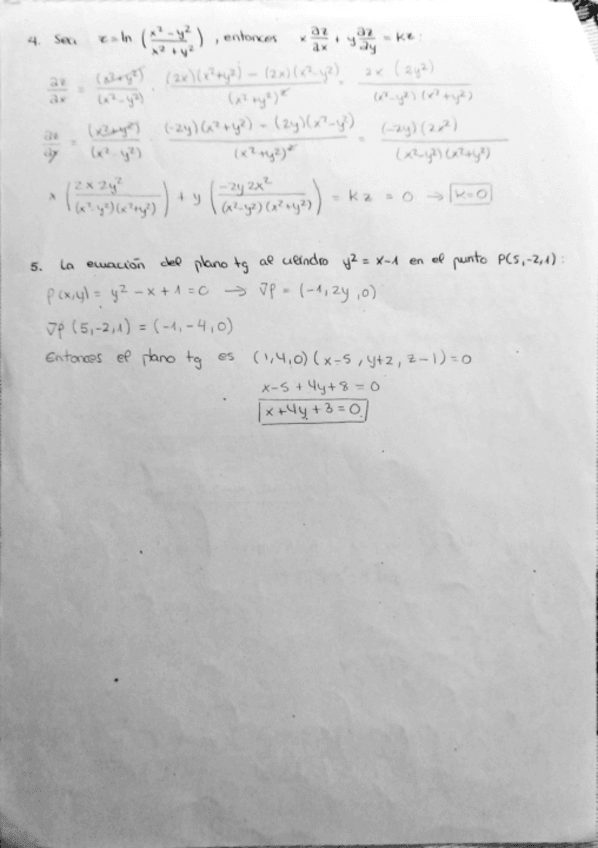 4. Sea z = ln (x² - y² / x² + y²), entonces x ∂z/∂x + y ∂z/∂y = kz :
∂z/∂x = (x²+y²)/(x²-y²) · (2x)(x²+y²) - (2x)(x²-y²)/(x²+y²)² = 2x (2y²)/(x²-y²)(x²+y²)
∂z/∂y = (x²+y²)/(x²-y²) · (-2y)(x²+y²) - (2y)(x²-y²)/(x²+y²)² = (-2y)(2x²)/(x²-y²)(x²+y²)
x (2x 2y²/(x²-y²)(x²+y²)) + y (-2y 2x²/(x²-y²)(x²+y²)) = kz = 0 → k=0
5. La ecuación del plano tg al cilindro y² = x-1 en el punto P(5,-2,1) :
f(x,y) = y² - x + 1 = 0 → ∇f = (-1, 2y, 0)
∇f (5,-2,1) = (-1,-4,0)
Entonces el plano tg es (1,4,0)(x-5, y+2, z-1) = 0
x-5 + 4y + 8 = 0
x + 4y + 3 = 0